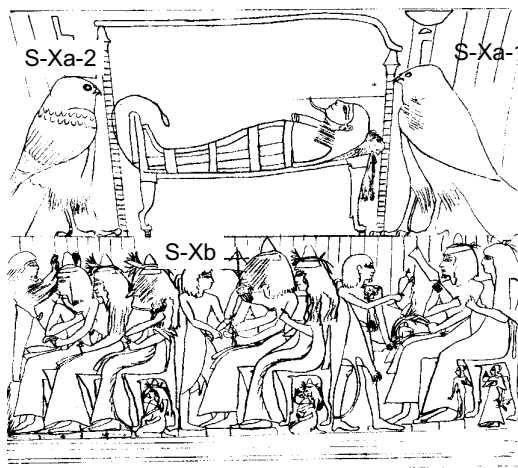 S-Xa-2
S-Xa-1
S-Xb